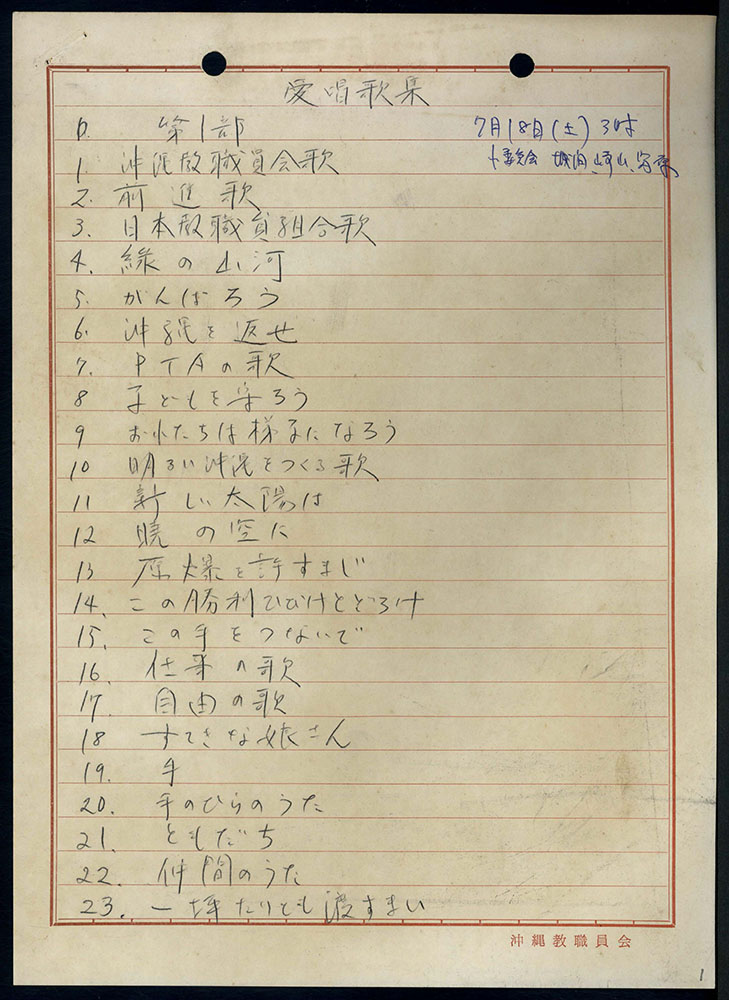 愛唱歌集
0 第1部 7月18日(土) 3時
小委員会 城内、崎山、
1. 沖縄教職員会歌
2. 前進歌
3. 日本教職員組合歌
4. 緑の山河
5. がんばろう
6. 沖縄を返せ
7. PTAの歌
8 子どもを守ろう
9 おれたちは梯子になろう
10 明るい沖縄をつくる歌
11 新しい太陽は
12 暁の空に
13 原爆を許すまじ
14. この勝利ひびけとどろけ
15. この手をつないで
16. 仕事の歌
17. 自由の歌
18 すてきな娘さん
19. 手
20. 手のひらのうた
21. ともだち
22. 仲間のうた
23. 一坪たりとも渡すまい
沖縄教職員会
1